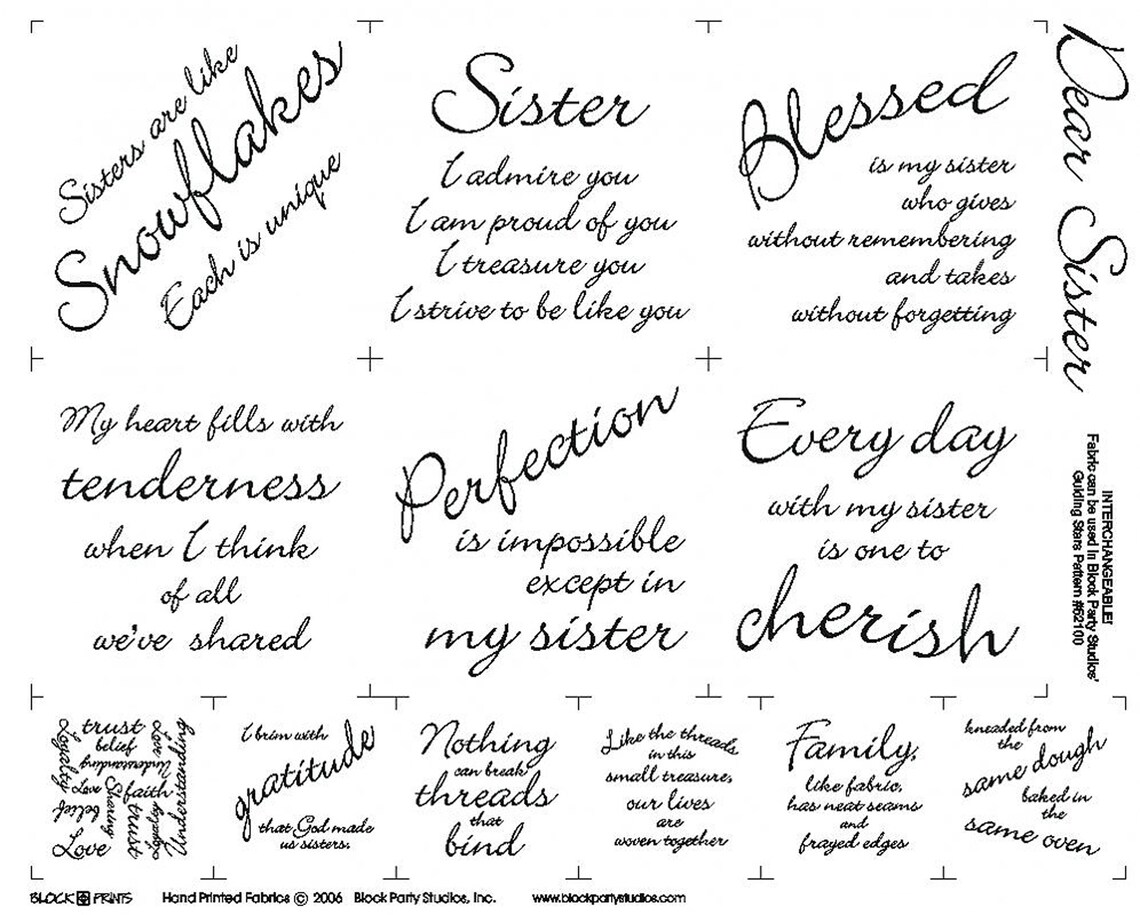 Sisters are like
Snowflakes
Each is unique
Sister
I admire you
I am proud of you
I treasure you
I strive to be like you
Blessed
is my sister
who gives
without remembering
and takes
without forgetting
Dear Sister
My heart fills with
tenderness
when I think
of all
we've shared
Perfection
is impossible
except in
my sister
Every day
with my sister
is one to
cherish
INTERCHANGEABLE!
Fabric can be used in Block Party Studios'
Guiding Stars Pattern #62100
trust
belief
Understanding
Love
Loyalty
Love
faith
Sharing
belief
trust
Loyalty
Understanding
Love
I brim with
gratitude
that God made
us sisters.
Nothing
can break
threads
that
bind
Like the threads
in this
small treasure,
our lives
are
woven together
Family,
like fabric,
has neat seams
and
frayed edges
kneaded from
the
same dough
baked in
the
same oven
BLOCK PRINTS Hand Printed Fabrics © 2006 Block Party Studios, Inc. www.blockpartystudios.com